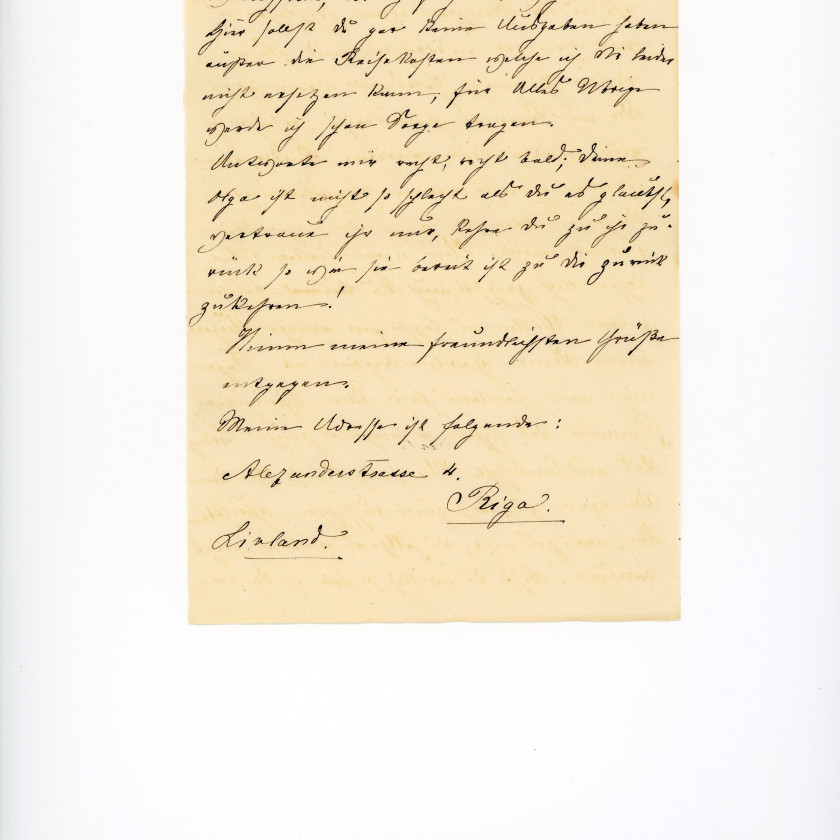 Hier sollst du gar keine Ausgaben haben
außer die Reisekosten welche ich dir leider
nicht ersetzen kann, für Alles Übrige
werde ich schon Sorge tragen.
Antworte mir recht, recht bald; deine
Olga ist nicht so schlecht als du es glaubst,
vertraue ihr nur, kehre du zu ihr zu-
rück so wie sie bereit ist zu dir zurück
zukehren!
Nimm meine freundlichsten Grüße
entgegen.
Meine Adresse ist folgende:
Alexanderstrasse 4.
Riga.
Livland.